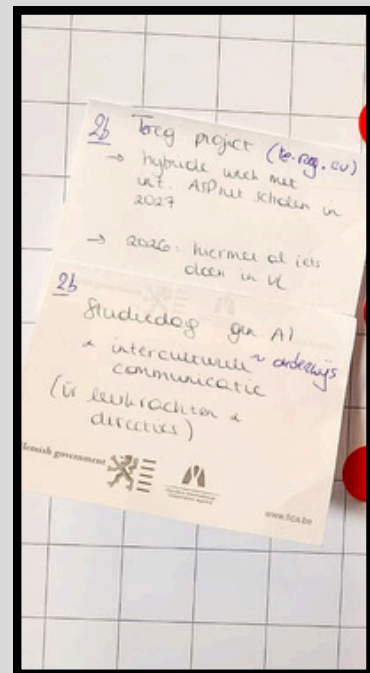 2b project (be-reg.eu)
→ hybride week met
int. ASPnet scholen in
2027
→ 2026: hiermee al iets
doen in VL
2b
Studiedag gen AI
& interculturele ~ onderwijs
communicatie
(ir leerkrachten &
directies)
lemish government
www.fica.be